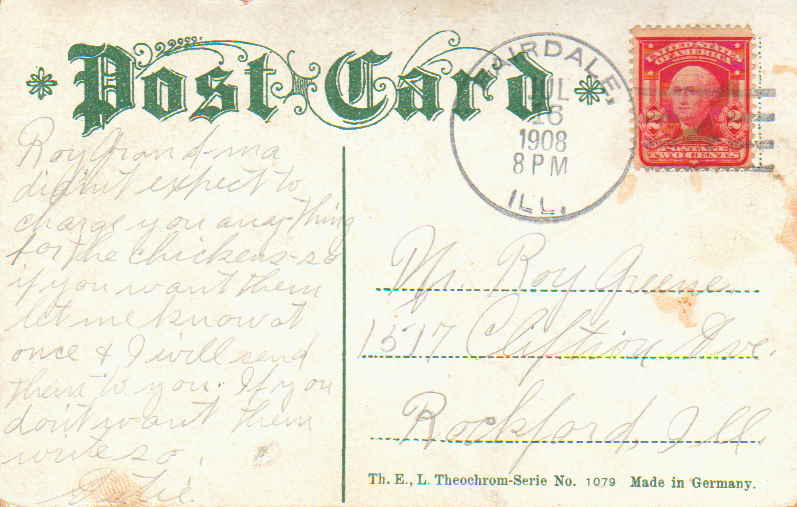 Post Card
FAIRDALE,
JUL
16
1908
8 PM
ILL.
UNITED STATES
OF AMERICA
2 2
POSTAGE
TWO CENTS
Roy Grand-ma
didn't expect to
charge you any-thing
for the chickens - so
if you want them
let me know at
once & I will send
them to you. If you
don't want them
write so.
Mr. Roy Greene.
1517 Cliftion Ave.
Rockford, Ill.
Th. E., L. Theochrom-Serie No. 1079 Made in Germany.